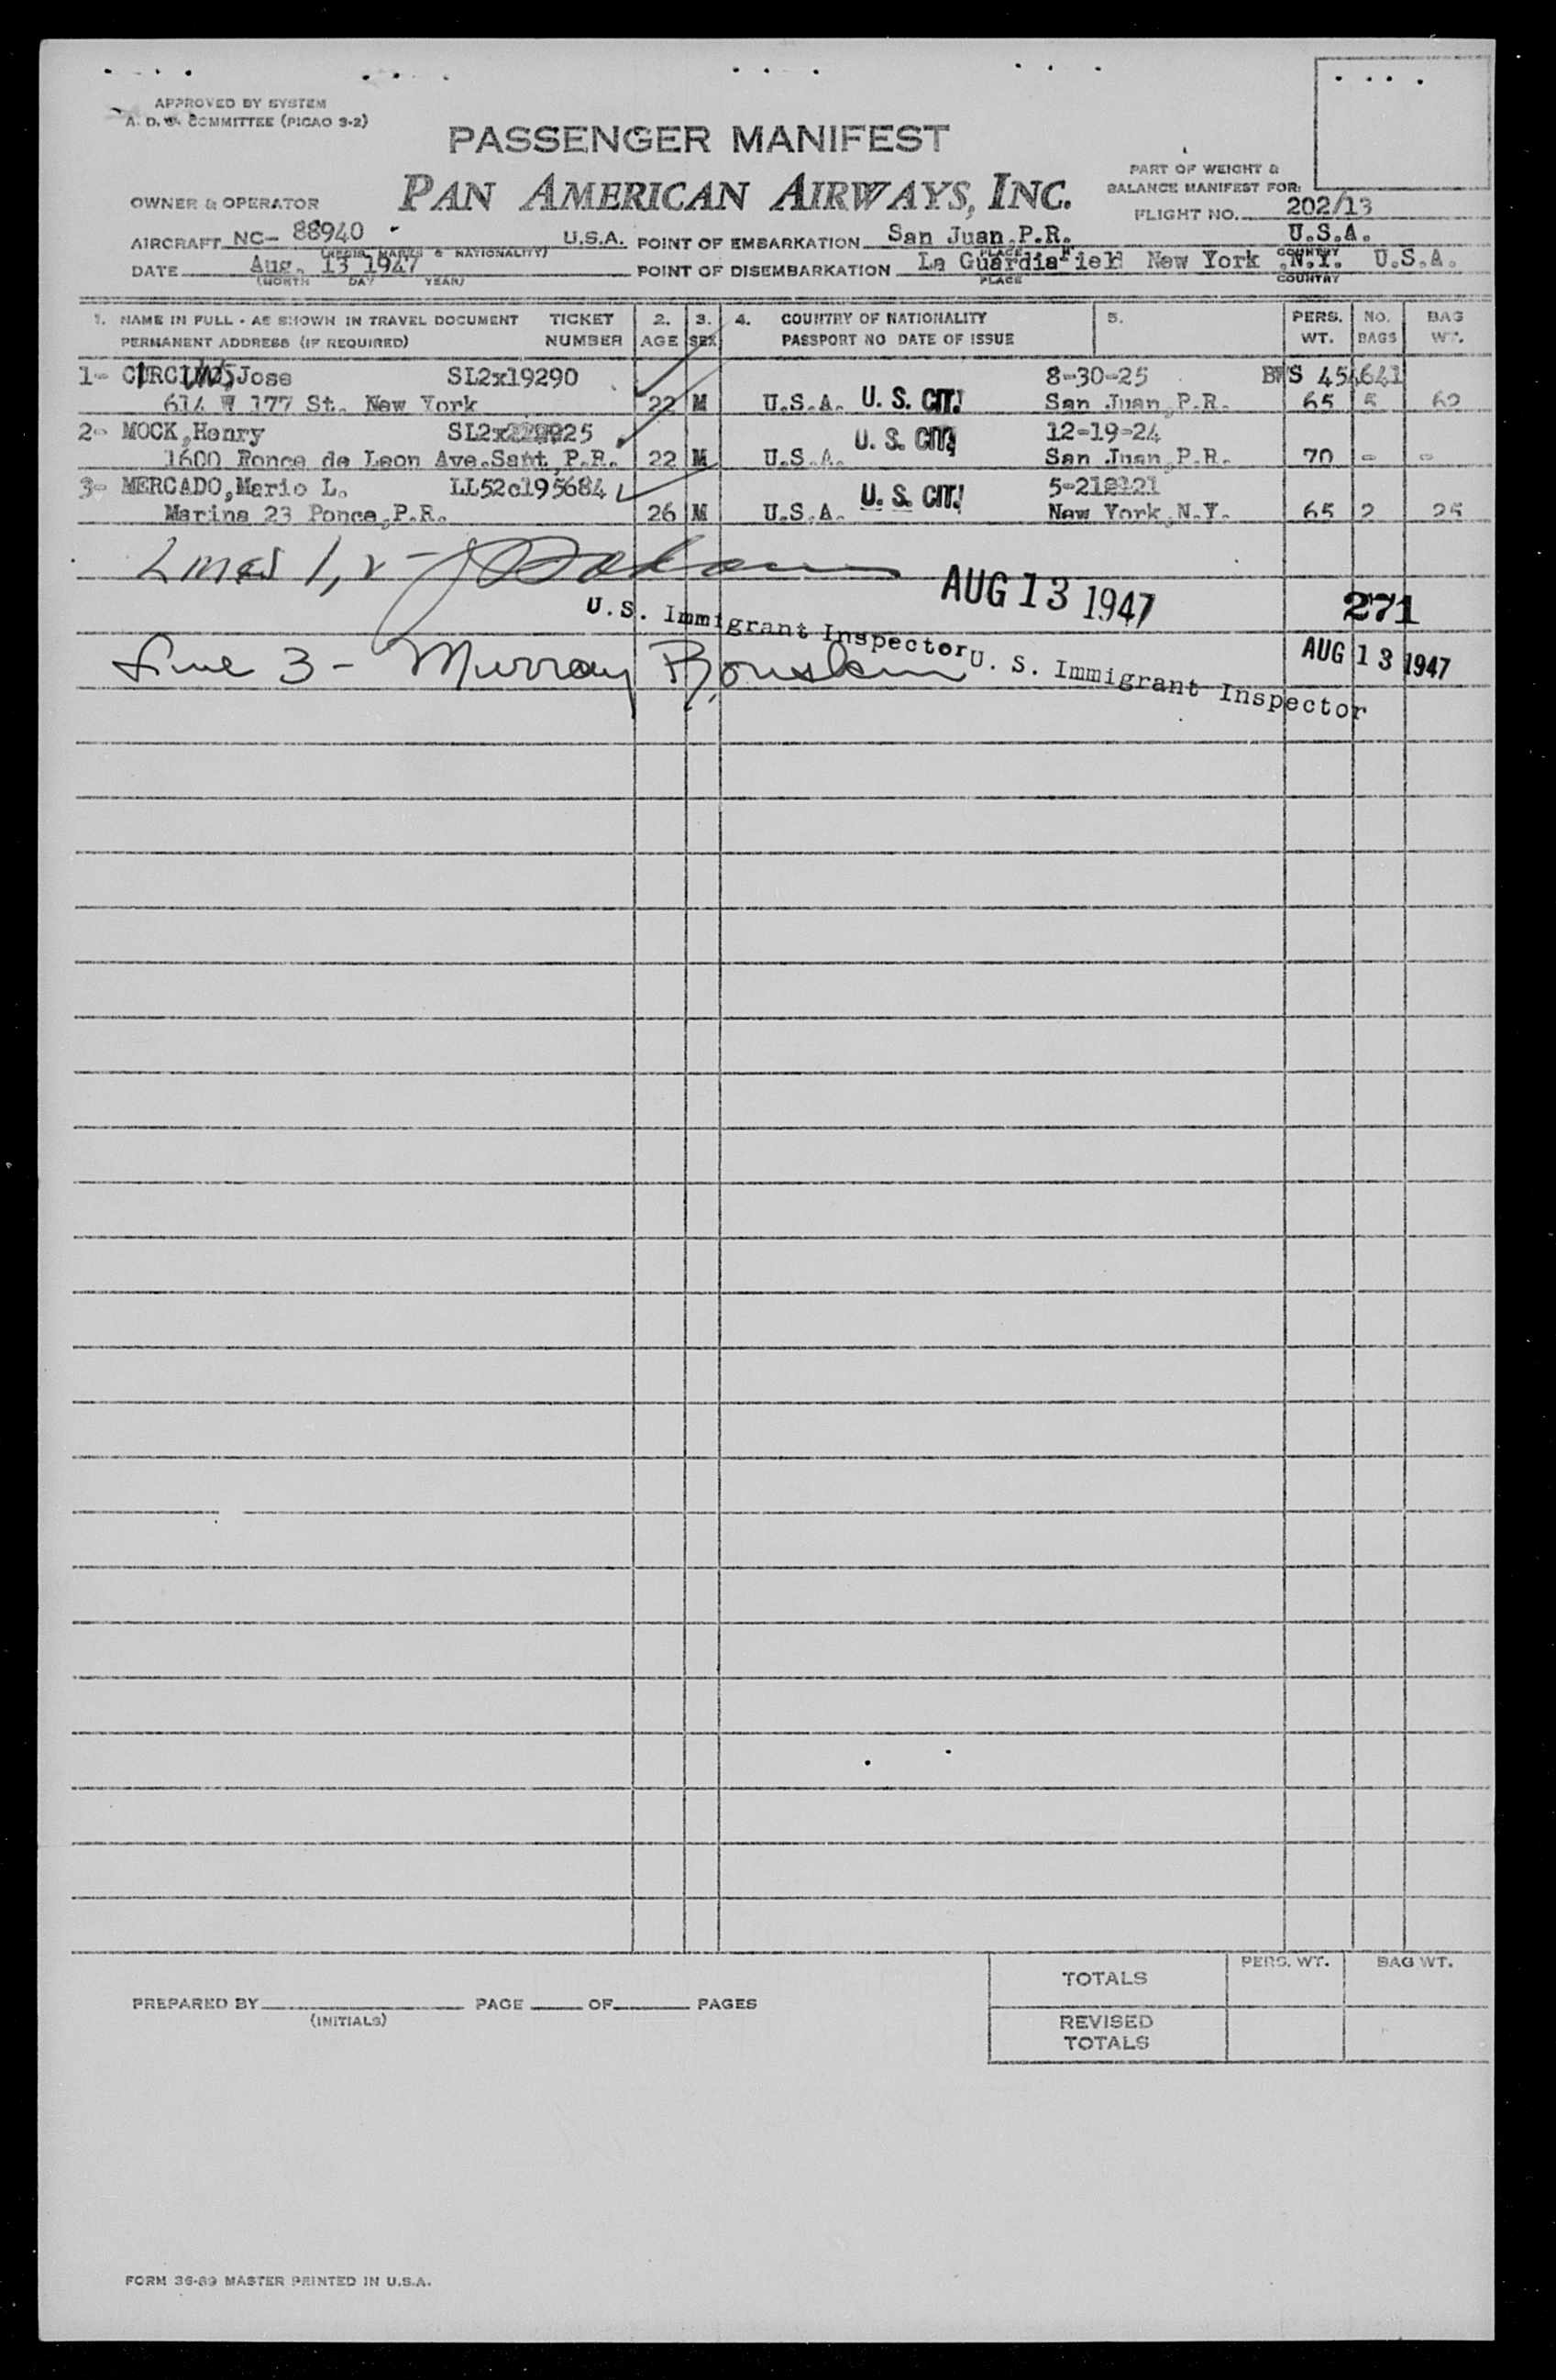 APPROVED BY SYSTEM
A. D. COMMITTEE (PICAO 3-2)
PASSENGER MANIFEST
PAN AMERICAN AIRWAYS, INC.
PART OF WEIGHT &
BALANCE MANIFEST FOR:
OWNER & OPERATOR
FLIGHT NO. 202/13
AIRCRAFT NC- 88940 U.S.A. POINT OF EMBARKATION San Juan,P.R. U.S.A.
(REGIS. MARKS & NATIONALITY) PLACE COUNTRY
DATE Aug. 13 1947 POINT OF DISEMBARKATION La Guardia Field New York ,N.Y. U.S.A.
(MONTH DAY YEAR) PLACE COUNTRY
1. NAME IN FULL - AS SHOWN IN TRAVEL DOCUMENT TICKET 2. 3. 4. COUNTRY OF NATIONALITY 5. PERS. NO. BAG
PERMANENT ADDRESS (IF REQUIRED) NUMBER AGE SEX PASSPORT NO DATE OF ISSUE WT. BAGS WT.
1- Jose SL2x19290 8-30-25 454641
614 W 177 St. New York 22 M U.S.A. U. S. CIT. San Juan,P.R. 65 5 62
2- MOCK,Henry 12-19-24
1600 Ponce de Leon Ave.Sant,P.R. 22 M U.S.A. U. S. CIT. San Juan,P.R. 70 - -
3- MERCADO,Mario L. LL52c195684
Marina 23 Ponce,P.R. 26 M U.S.A. U. S. CIT. New York,N.Y. 65 2 25
Lines 1, 2 -
AUG 13 1947
271
U.S. Immigrant Inspector
Line 3 - Murray
AUG 13 1947
U. S. Immigrant Inspector
TOTALS PERS. WT. BAG WT.
PREPARED BY PAGE OF PAGES
(INITIALS)
REVISED
TOTALS
FORM 36-89 MASTER PRINTED IN U.S.A.